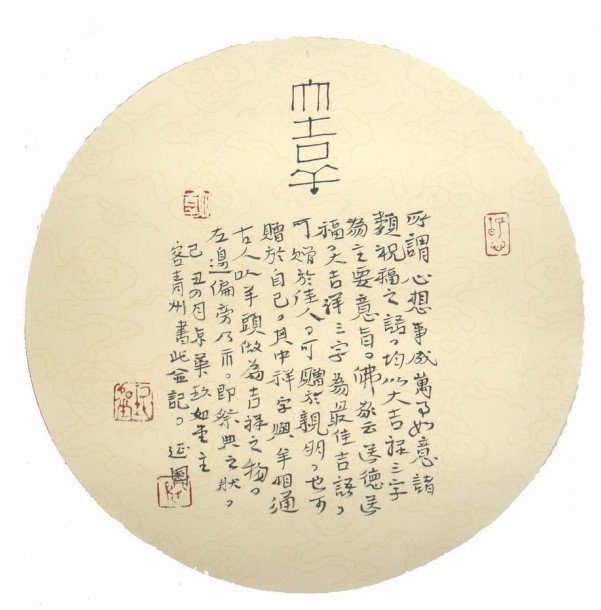 大吉
所謂心想事成萬事如意諸
類祝福之語。均以大吉祥三字
為主要意旨。佛家云送德送
福。大吉祥三字為最佳吉語。
可贈於佳人。可贈於親朋。也可
贈於自己。其中祥字與羊相通
古人以羊頭做為吉祥之物。
左邊偏旁乃示。即祭典之狀。
己丑四月京華玖如堂主
客青州書此並記。延